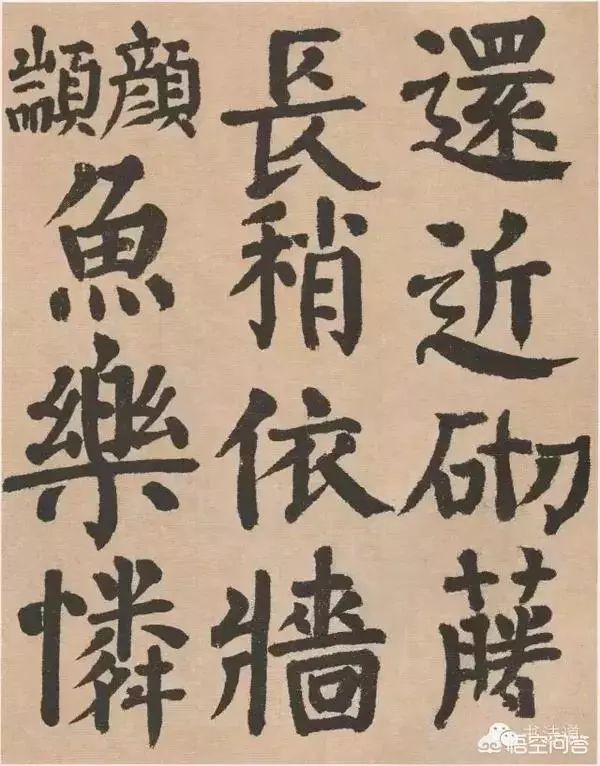 還近砌藤
長稍依牆
顏顓魚樂憐
悟空问答